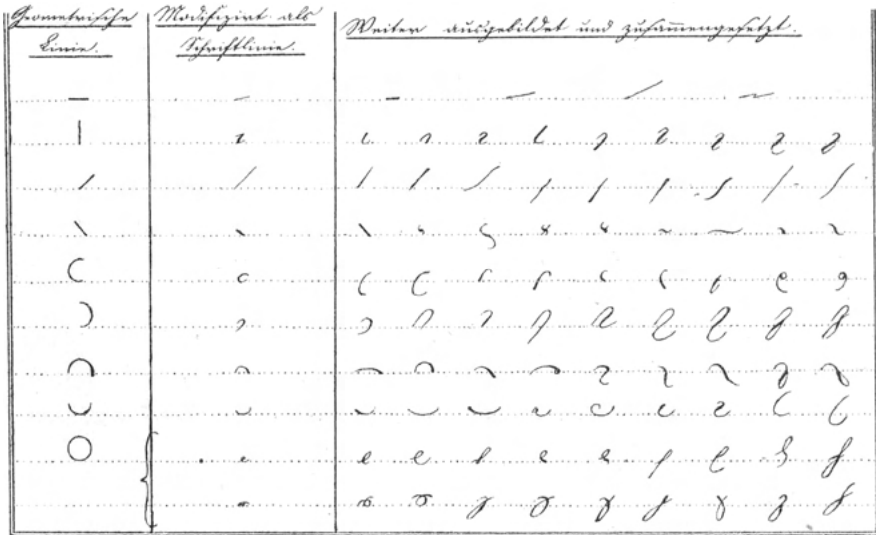 Geometrische Linie.
Modifizirt als Schriftlinie.
Weiter ausgebildet und zusammengesetzt.